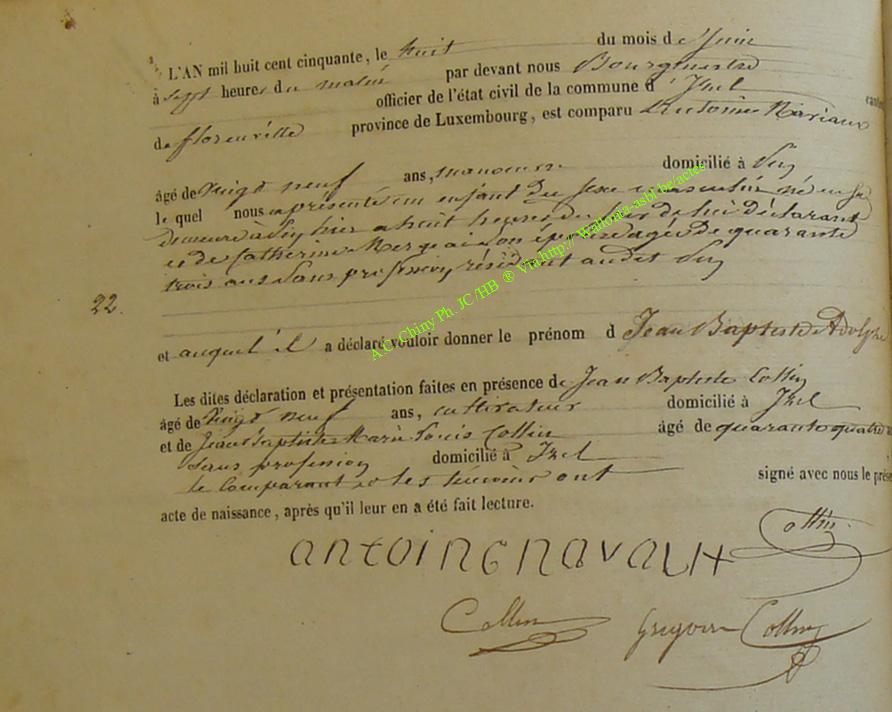 L'AN mil huit cent cinquante, le huit du mois de Juin
à sept heures du matin par devant nous Bourgmestre
officier de l'état civil de la commune d' Izel canton
de florenville province de Luxembourg, est comparu Antoine
âgé de vingt neuf ans, manœuvre domicilié à
le quel nous a présenté un enfant du sexe masculin né en sa
demeure à hier a huit heures du de lui déclarant
et de Catherine son épouse agée de quarante
trois ans sans profession résidant audit
22.
et auquel il a déclaré vouloir donner le prénom d Jean Baptiste Adolphe
Les dites déclaration et présentation faites en présence de Jean Baptiste Collin
âgé de vingt neuf ans, cultivateur domicilié à Izel
et de Jean Baptiste Marie Louis Collin âgé de quarante quatre
sans profession domicilié à Izel
le comparant et les témoins ont signé avec nous le prése
acte de naissance, après qu'il leur en a été fait lecture.
Collin
antoine navaux
Collin Grégoire Collin
A.C. Chiny Ph. JC /HB ® Via http://Wallonia-asbl.be/actes